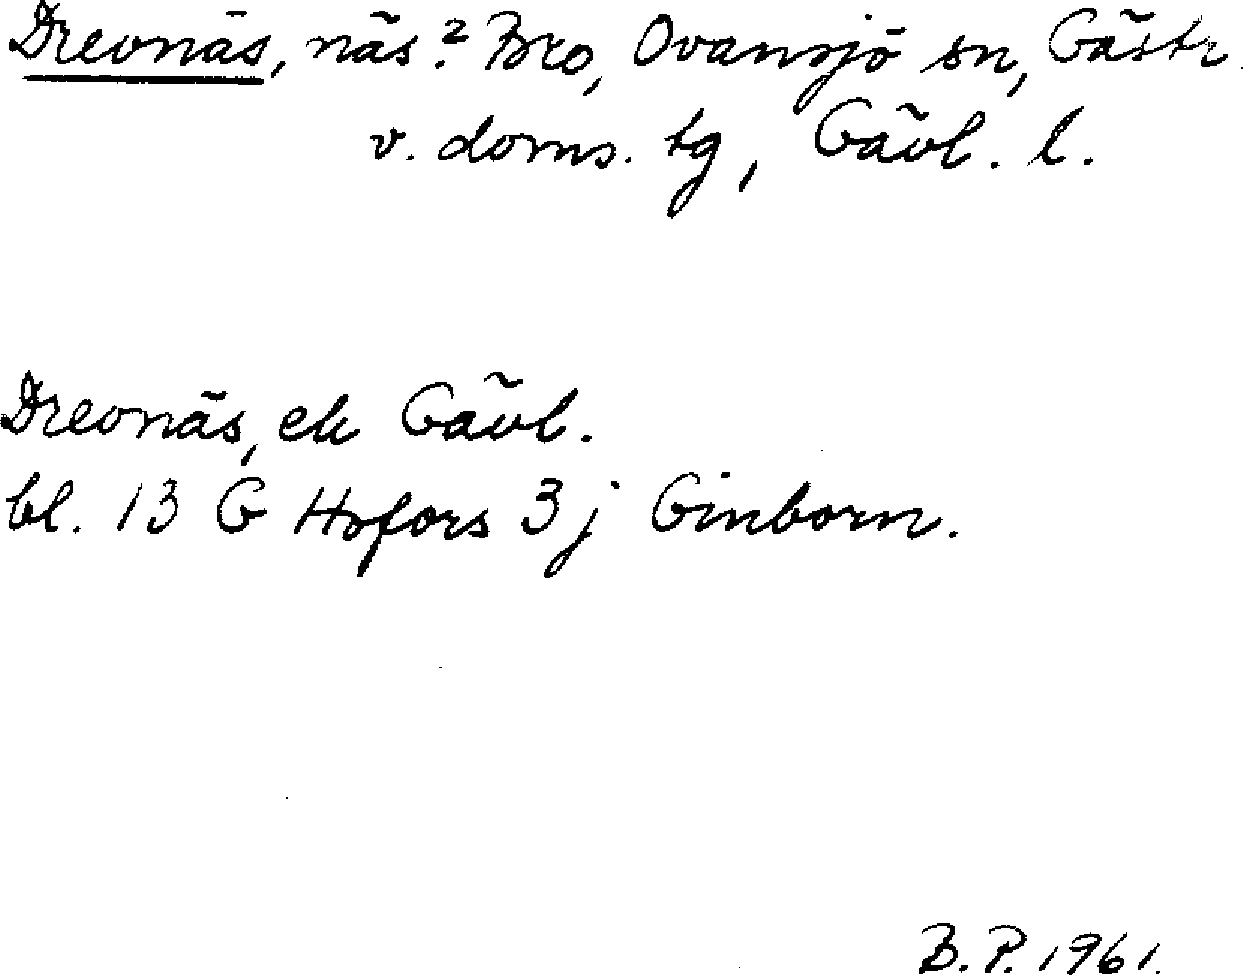 Drevnäs, näs? Bro, Ovansjö sn, Gästr.
v. doms. tg, Gävl. l.
Drevnäs, ek Gävl.
bl. 13 G Hofors 3 j Ginborn.
B. P. 1961.